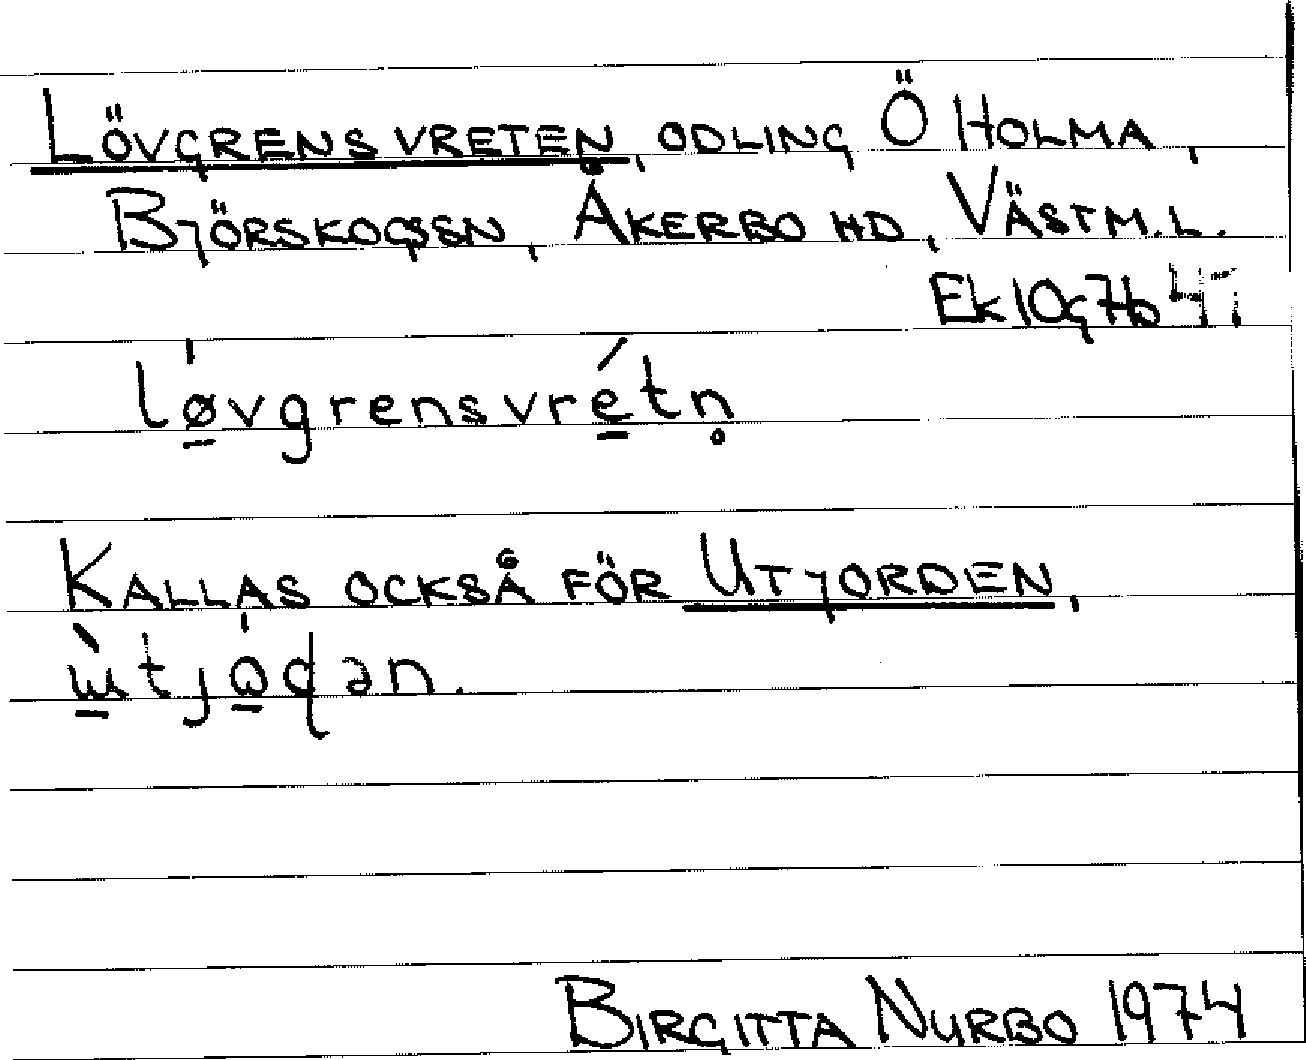 LÖVGRENSVRETEN, ODLING Ö HOLMA,
BJÖRSKOGS SN, ÅKERBO HD, VÄSTM.L.
Ek 10g7b
lø̲vgrensvré̲tn̥
KALLAS OCKSÅ FÖR UTJORDEN,
BIRGITTA NURBO 1974